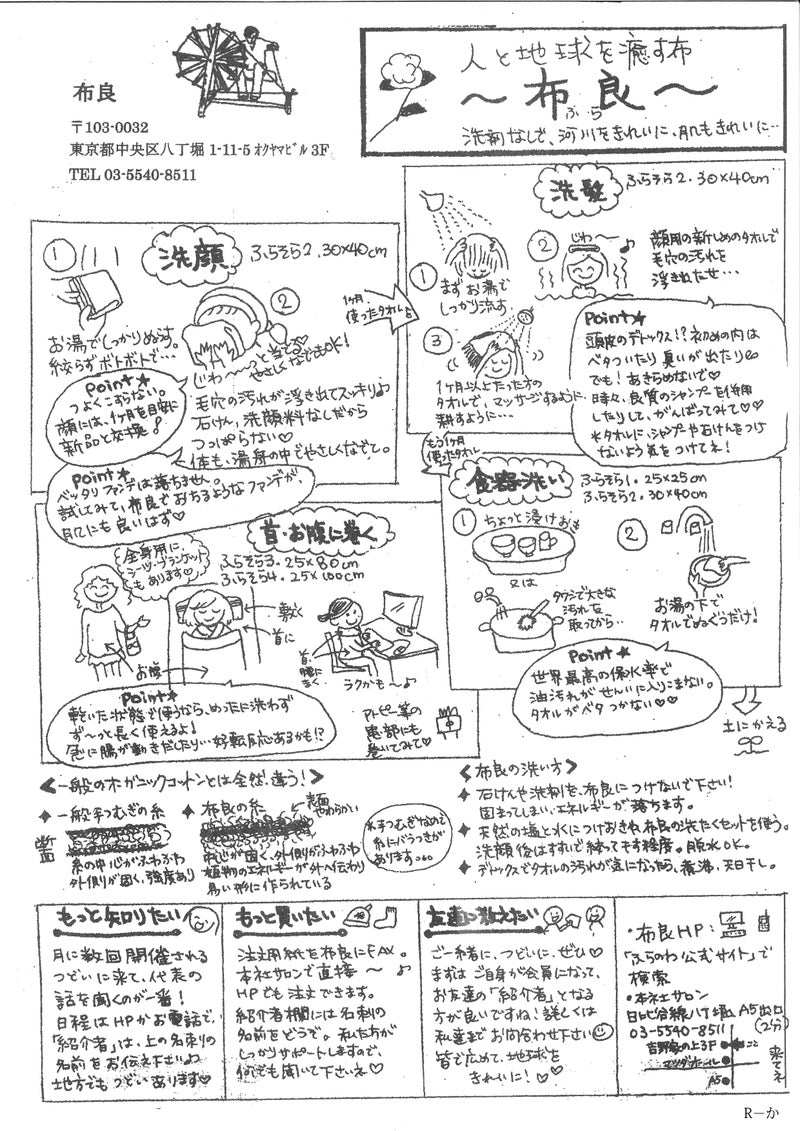 布良
〒103-0032
東京都中央区八丁堀 1-11-5 オクヤマビル 3F
TEL 03-5540-8511
人と地球を癒す布
～布良～
ぷら
洗剤なしで、河川をきれいに、肌もきれいに…
洗顔
ふらそら2. 30×40cm
①
お湯でしっかりぬらす。
絞らずボトボトで…
②
じわ～～っと当てる♡
やさしくなでてもOK!
毛穴の汚れが浮き出てスッキリ♪
石けん、洗顔料なしだから
つっぱらない♡
体も、湯舟の中でやさしくなでて。
Point★
つよくこすらない。
顔には、1ヶ月を目安に
新品と交換!
Point★
ベッタリファンデは落ちません。
試してみて、布良でおちるようなファンデが、
肌にも良いはず♡
1ヶ月
使ったタオルは
洗髪
ふらそら2. 30×40cm
①
まずお湯で
しっかり流す
②
じわ～
♪
顔用の新しめのタオルで
毛穴の汚れを
浮きたたせ…
③
1ヶ月以上たった方の
タオルで、マッサージするように
耕すように…
Point★
頭皮のデトックス!?初めの内は
ベタついたり臭いが出たり
でも!あきらめないで♡
時々、良質のシャンプーを併用
したりして、がんばってみて♡♡
*タオルに、シャンプーや石けんをつけ
ないよう気をつけてネ!
もう1ヶ月
使ったタオル
食器洗い
ふらそら1. 25×25cm
ふらそら2. 30×40cm
①
ちょっと浸けおき
又は
タワシで大きな
汚れを
取ってから…
②
お湯の下で
タオルでぬぐうだけ!
Point★
世界最高の保水率で
油汚れがせんいに入りこまない。
タオルがベタつかない♡♡
土にかえる
首・お腹に巻く
ふらそら3. 25×80cm
ふらそら4. 25×100cm
全身用に
シーツ・ブランケット
もあります♡
お腹
敷く
首に
首、腰に
まく
ラクかも～♪
Point★
乾いた状態で使うなら、めったに洗わず
ず～っと長く使えるよ!
急に腸が動きだしたり…好転反応あるかも!?
アトピー等の
患部にも
巻いてみて♡
《一般のオーガニックコットンとは全然、違う!》
断面
◆ 一般手つむぎの糸
糸の中心がふわふわ
外側が固く、強度あり
◆ 布良の糸
表面
やわらかい
中心が固く、外側がふわふわ
植物のエネルギーが外へ伝わり
易い形に作られている
*手つむぎなので
糸にバラつきが
あります…
《布良の洗い方》
◆ 石けんや洗剤を、布良につけないで下さい!
固まってしまい、エネルギーが落ちます。
◆ 天然の塩と水につけおきor布良の洗たくセットを使う。
洗顔後はすすいで絞って干す程度。脱水OK。
◆ デトックスでタオルの汚れが気になったら、煮沸、天日干し。
もっと知りたい
月に数回開催される
つどいに来て、代表の
話を聞くのが一番!
日程はHPかお電話で、
「紹介者」は、上の名刺の
名前をお伝え下さい♪
地方でもつどいあります♡
もっと買いたい
注文用紙を布良にFAX。
本社サロンで直接～♪
HPでも注文できます。
紹介者欄には名刺の
名前をどうぞ。私たちが
しっかりサポートしますので、
何でも聞いて下さいネ♡
友達に教えたい
ご一緒に、つどいに、ぜひ♡
まずはご自身が会員になって、
お友達の「紹介者」となる
方が良いですね!詳しくは
私達までお問合わせ下さい
皆で広めて、地球を
きれいに!♡
・布良HP:
「ふらのわ公式サイト」で
検索
・本社サロン
日比谷線八丁堀A5出口
03-5540-8511 (2分)
吉野家の上3F
ココ
マツダホール
A5
来てネ
R－か